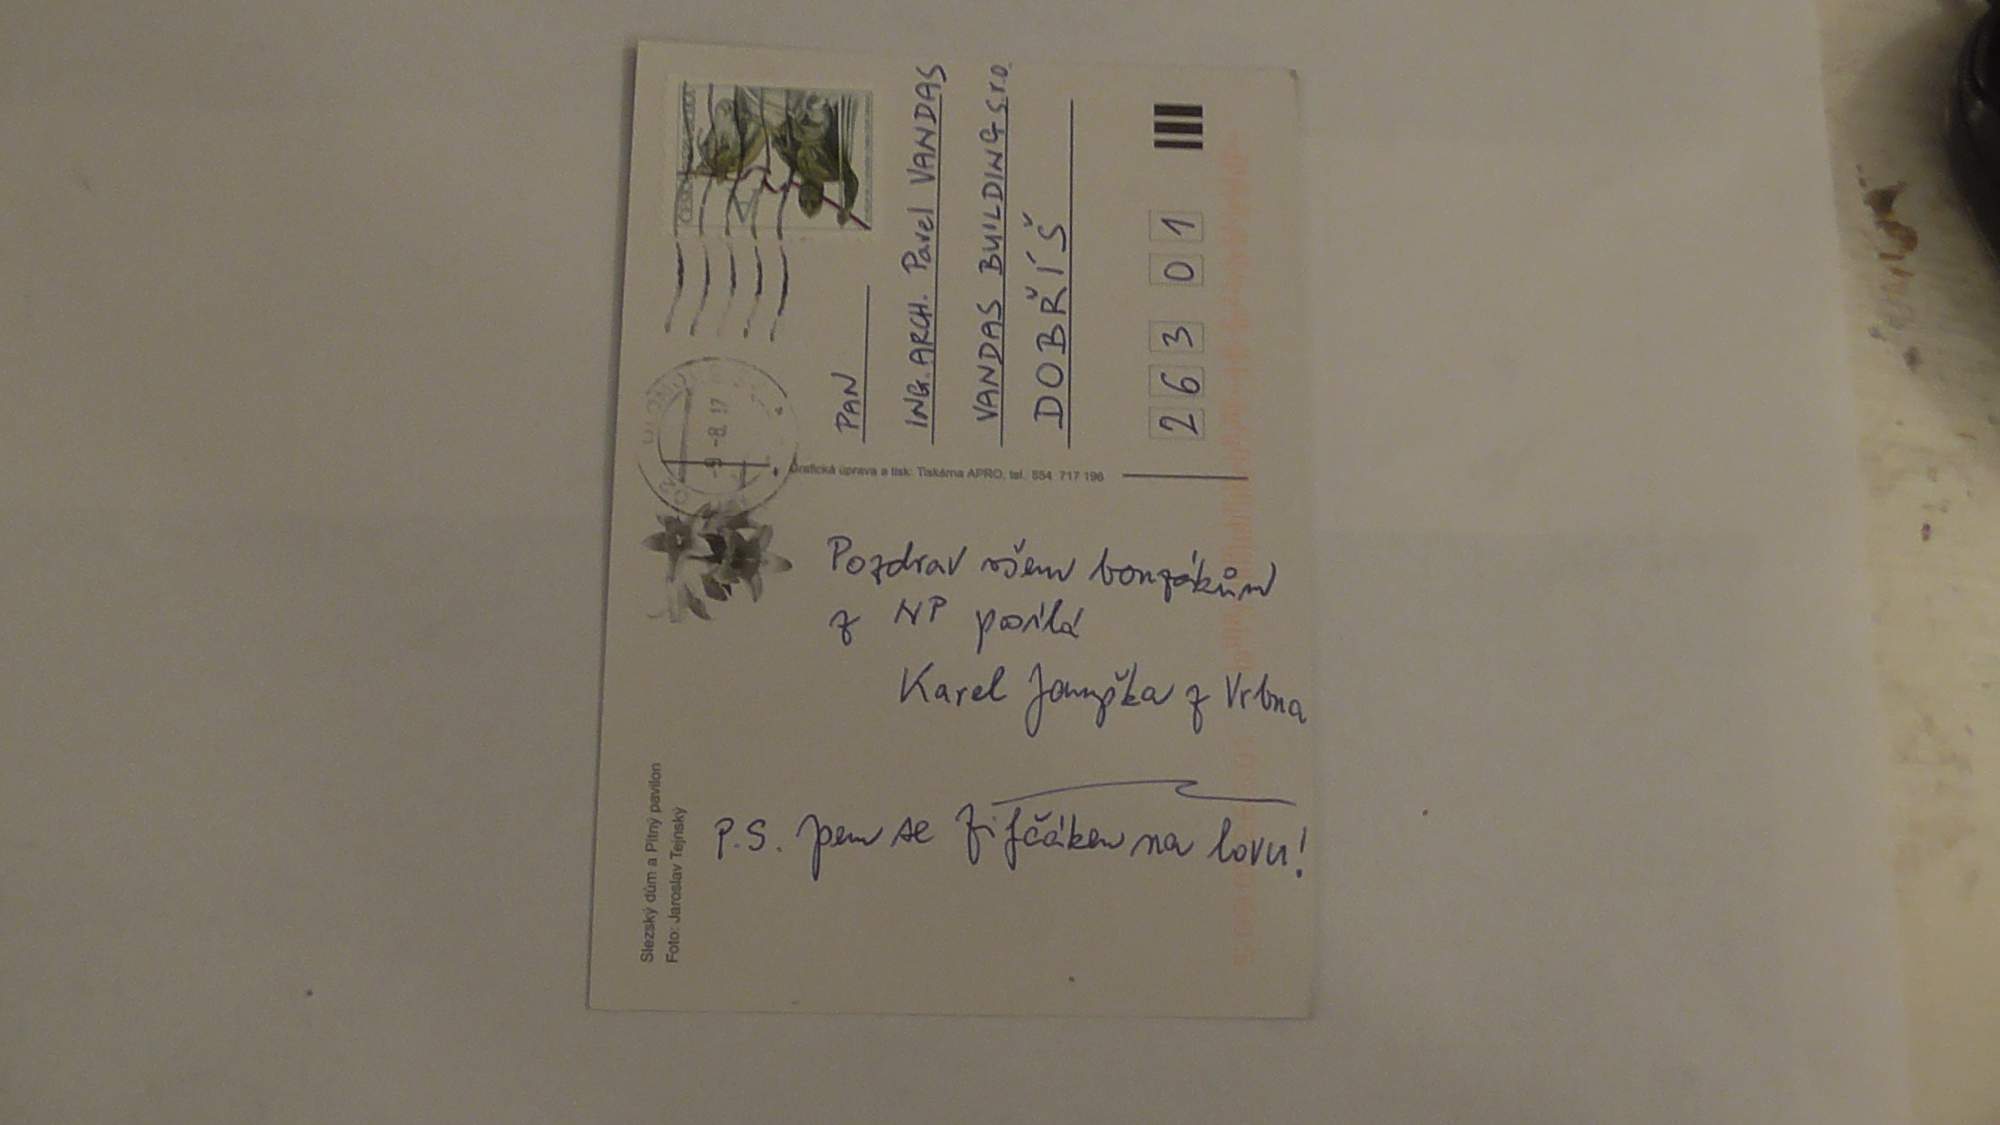 Slezský dům a Pitný pavilon
Foto: Jaroslav Tejnský
Pozdrav všem bonzákům
z NP posílá
Karel z Vrbna
P.S. jsem se na lovu!
Grafická úprava a tisk: Tiskárna APRO, tel. 554 717 196
-9.-8.17
PAN
ING. ARCH. Pavel VANDAS
VANDAS BUILDING s.r.o.
DOBŘÍŠ
263 01